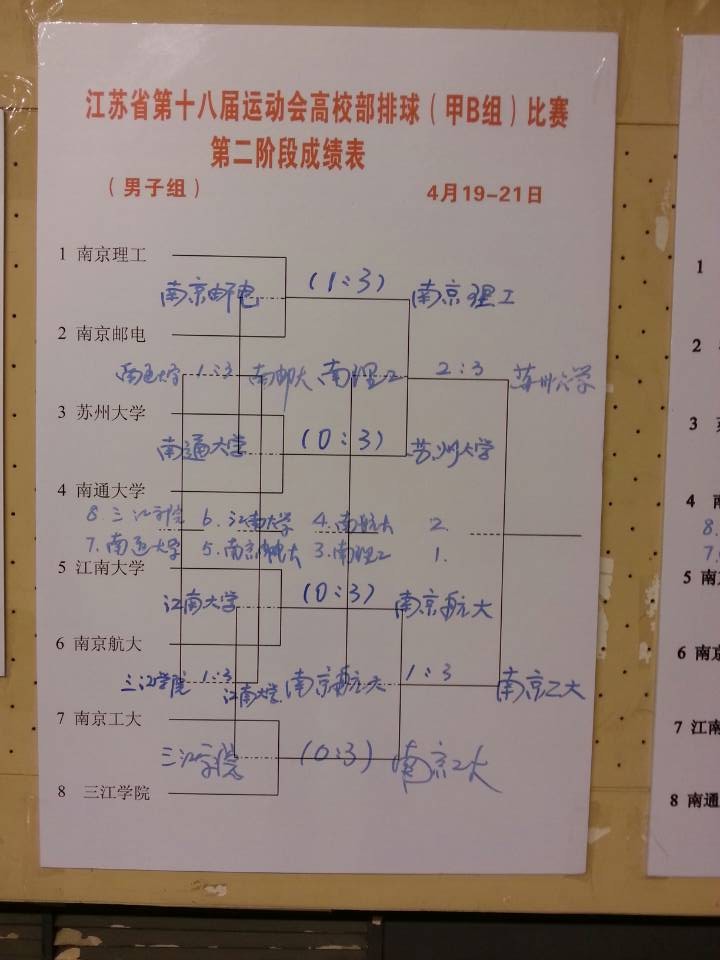 江苏省第十八届运动会高校部排球（甲B组）比赛
第二阶段成绩表
（男子组） 4月19-21日
1 南京理工
南京邮电 (1:3) 南京理工
2 南京邮电
南通大学 1:3 南邮大 南理工 2:3 苏州大学
3 苏州大学
南通大学 (0:3) 苏州大学
4 南通大学
8. 三江学院 6. 江南大学 4. 南航大 2.
7. 南通大学 5. 南京邮电大 3. 南理工 1.
5 江南大学
江南大学 (0:3) 南京航大
6 南京航大
三江学院 1:3 江南大学 南京航大 1:3 南京工大
7 南京工大
三江学院 (0:3) 南京工大
8 三江学院
1
2
3
4 南
8.
7.
5 南
6 南京
7 江南
8 南通